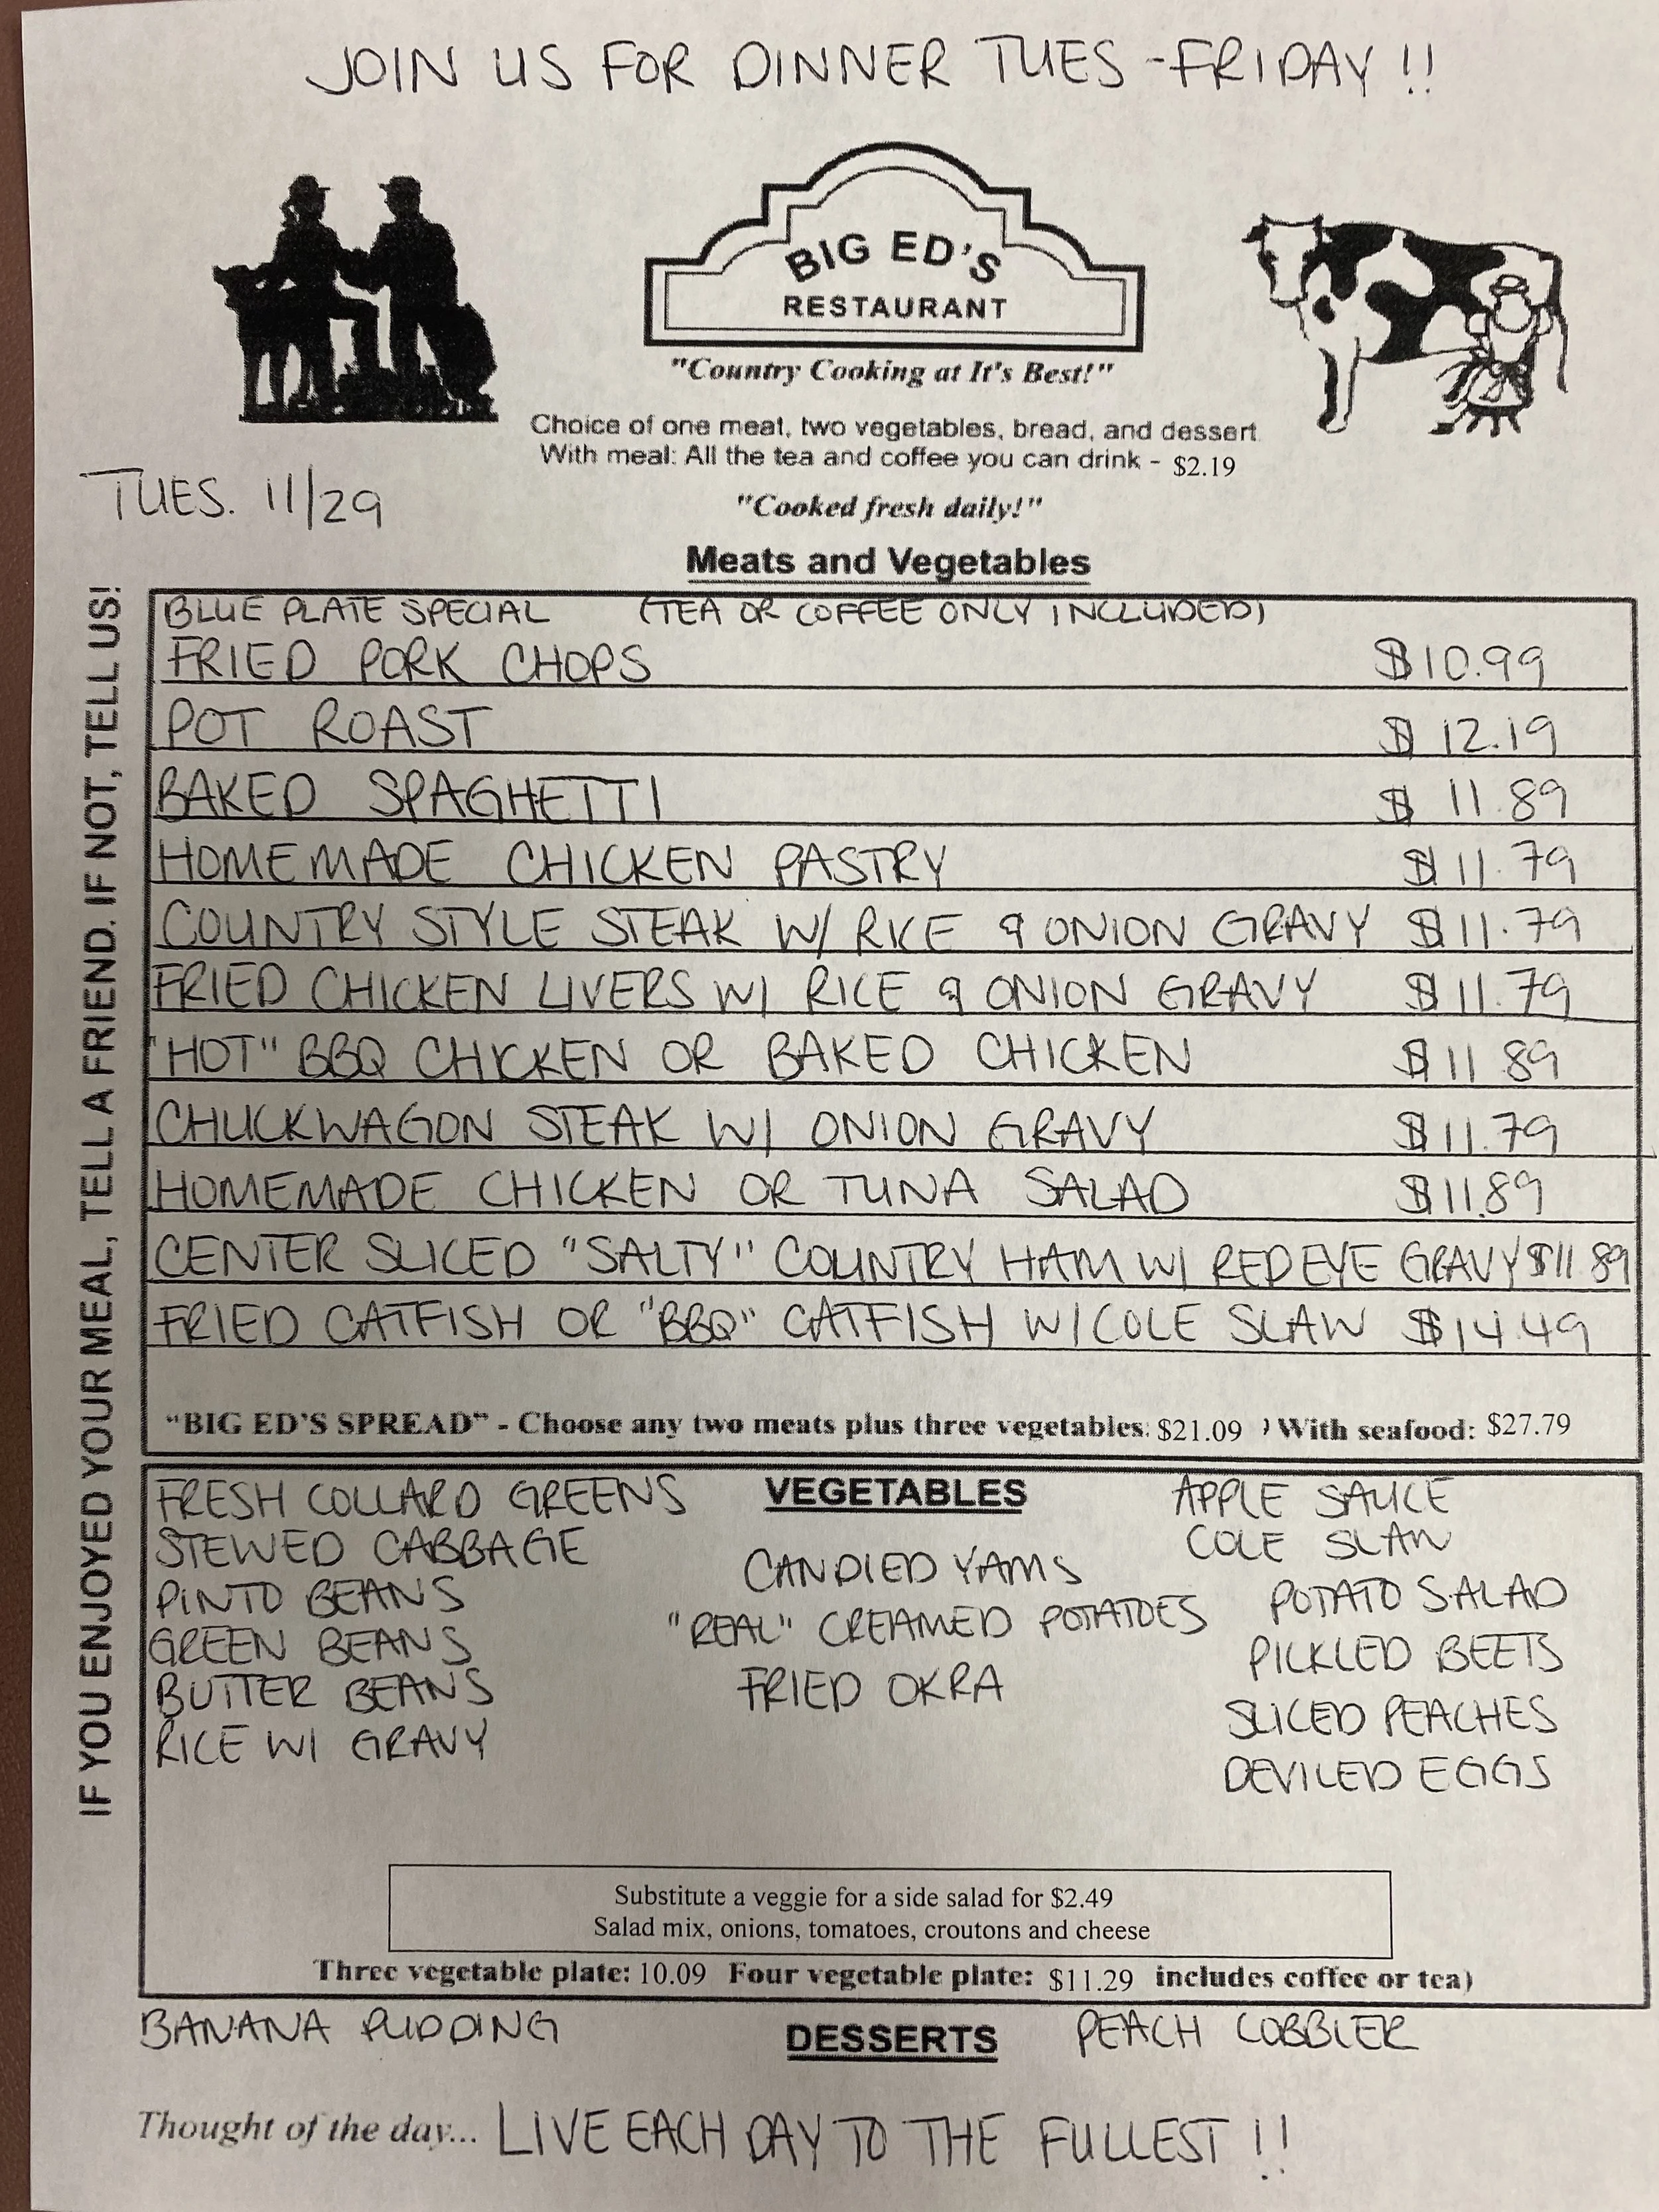 JOIN US FOR DINNER TUES - FRIDAY !!
BIG ED'S
RESTAURANT
"Country Cooking at It's Best!"
Choice of one meat, two vegetables, bread, and dessert
With meal: All the tea and coffee you can drink - $2.19
TUES. 11/29
"Cooked fresh daily!"
Meats and Vegetables
IF YOU ENJOYED YOUR MEAL, TELL A FRIEND. IF NOT, TELL US!
BLUE PLATE SPECIAL (TEA OR COFFEE ONLY INCLUDED)
FRIED PORK CHOPS $10.99
POT ROAST $12.19
BAKED SPAGHETTI $11.89
HOMEMADE CHICKEN PASTRY $11.79
COUNTRY STYLE STEAK W/ RICE & ONION GRAVY $11.79
FRIED CHICKEN LIVERS W/ RICE & ONION GRAVY $11.79
"HOT" BBQ CHICKEN OR BAKED CHICKEN $11.89
CHUCKWAGON STEAK W/ ONION GRAVY $11.79
HOMEMADE CHICKEN OR TUNA SALAD $11.89
CENTER SLICED "SALTY" COUNTRY HAM W/ RED EYE GRAVY $11.89
FRIED CATFISH OR "BBQ" CATFISH W/ COLE SLAW $14.49
"BIG ED'S SPREAD" - Choose any two meats plus three vegetables: $21.09 ) With seafood: $27.79
VEGETABLES
FRESH COLLARD GREENS
STEWED CABBAGE
PINTO BEANS
GREEN BEANS
BUTTER BEANS
RICE W/ GRAVY
CANDIED YAMS
"REAL" CREAMED POTATOES
FRIED OKRA
APPLE SAUCE
COLE SLAW
POTATO SALAD
PICKLED BEETS
SLICED PEACHES
DEVILED EGGS
Substitute a veggie for a side salad for $2.49
Salad mix, onions, tomatoes, croutons and cheese
Three vegetable plate: 10.09 Four vegetable plate: $11.29 includes coffee or tea)
BANANA PUDDING DESSERTS PEACH COBBLER
Thought of the day... LIVE EACH DAY TO THE FULLEST !!